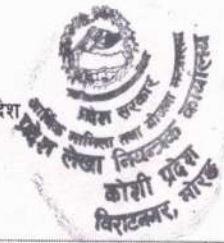 देश
प्रदेश सरकार
आर्थिक मामिला तथा योजना मन्त्रालय
प्रदेश लेखा नियन्त्रक कार्यालय
कोशी प्रदेश
विराटनगर, मोरङ